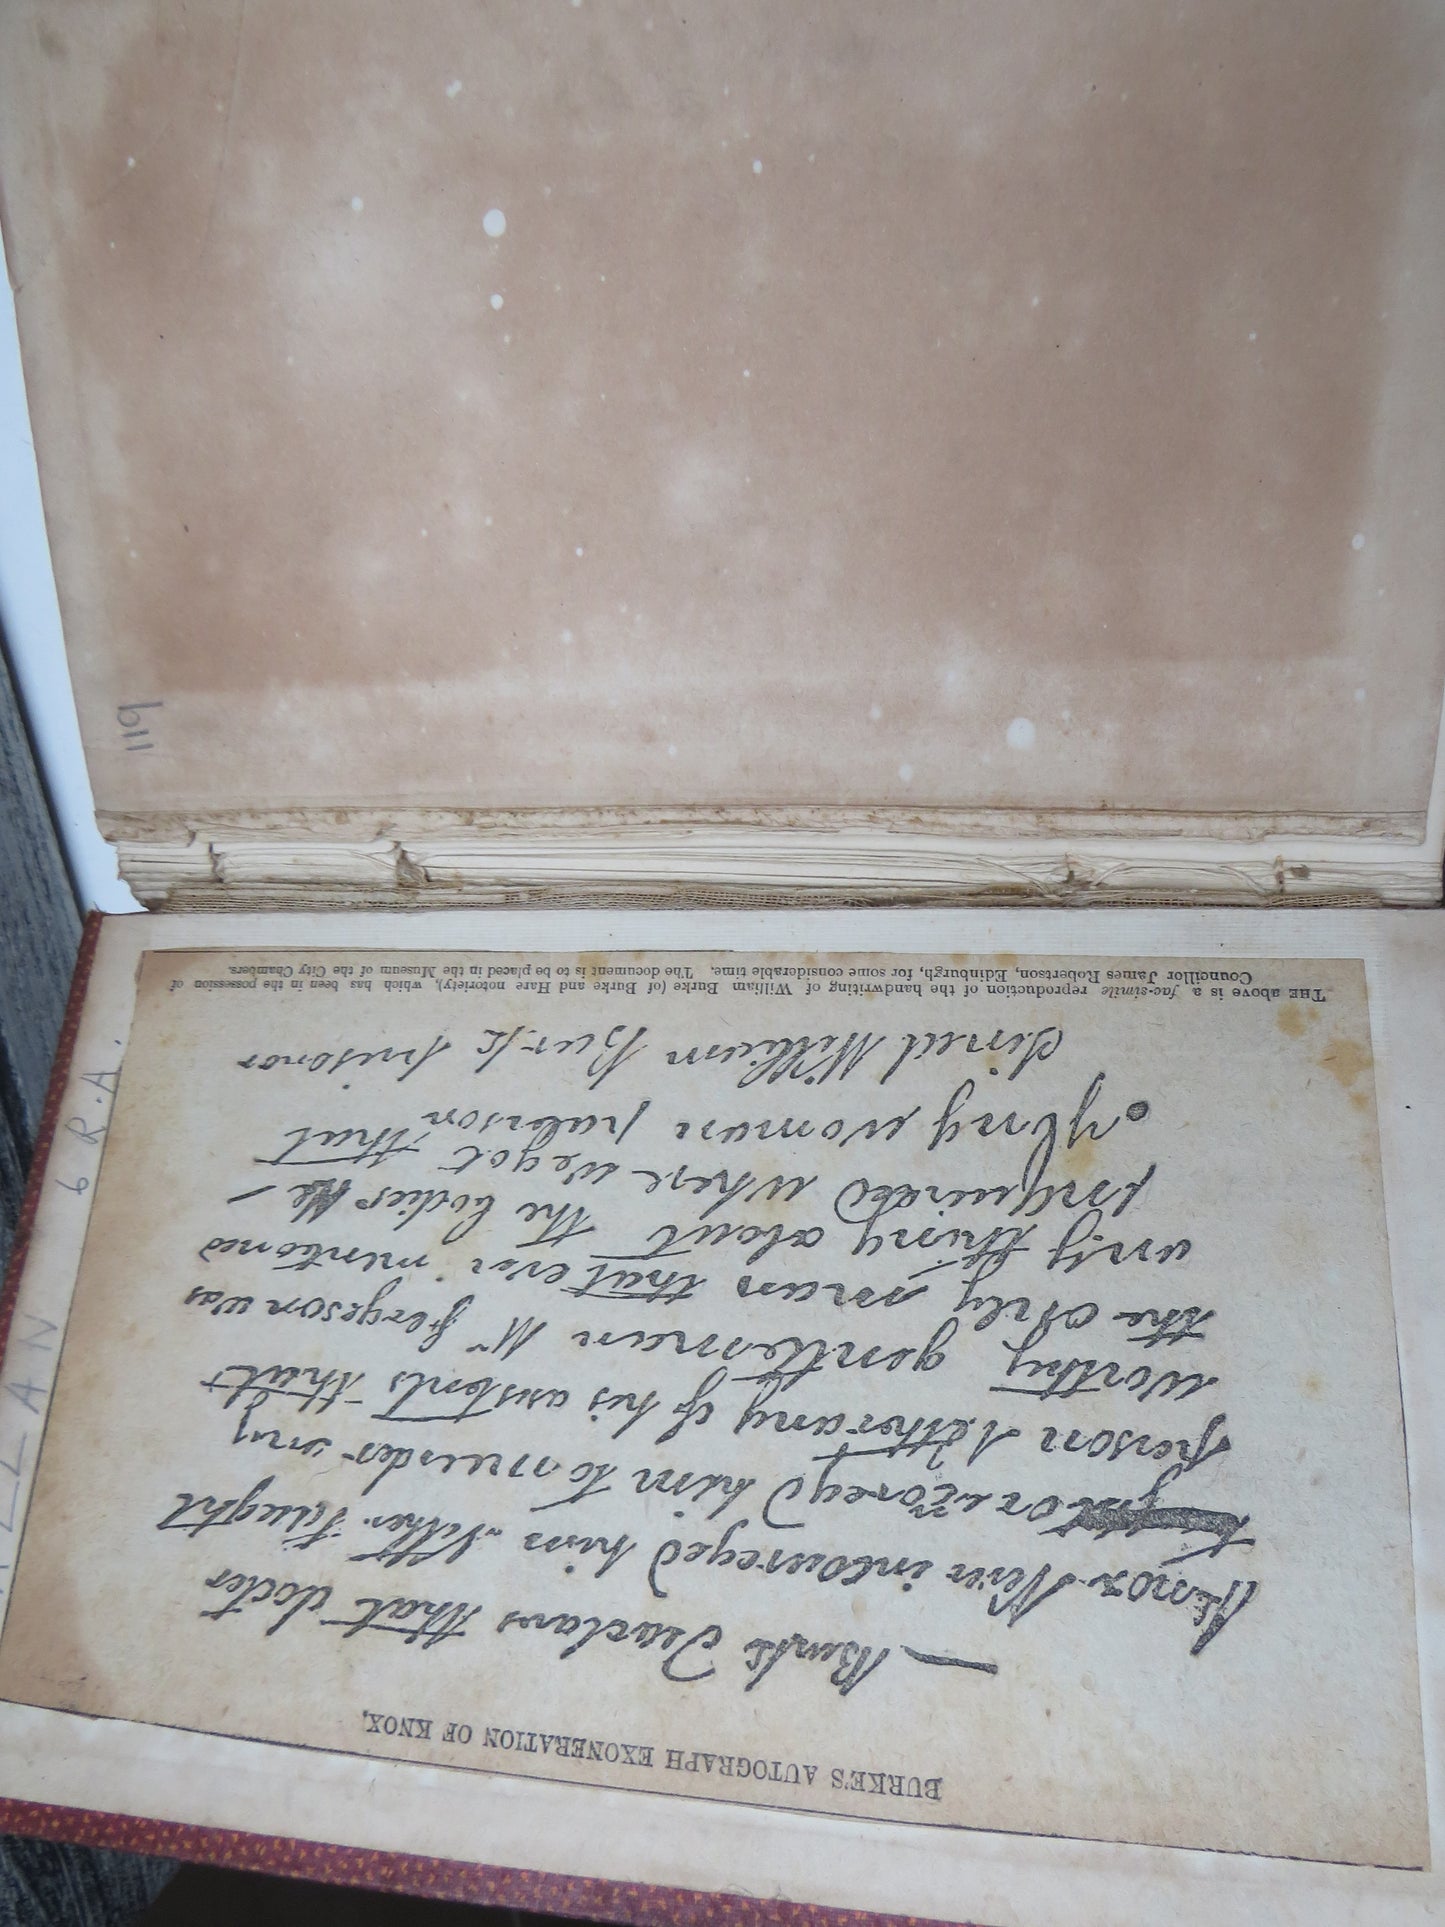 BURKE'S AUTOGRAPH EXONERATION OF KNOX.
— Burk Deaclars that docter
Knox Never incoureged him Nither taught
or incoreged him to murder any
person Nether any of his asistents that
worthy gentleman Mr fergeson was
the Only man that ever mentioned
any thing about the bodies He
inquired where we got that
yong woman paterson
Sined William Burk prisonor
THE above is a fac-simile reproduction of the handwriting of William Burke (of Burke and Hare notoriety), which has been in the possession of
Councillor James Robertson, Edinburgh, for some considerable time. The document is to be placed in the Museum of the City Chambers.
6 R.A.